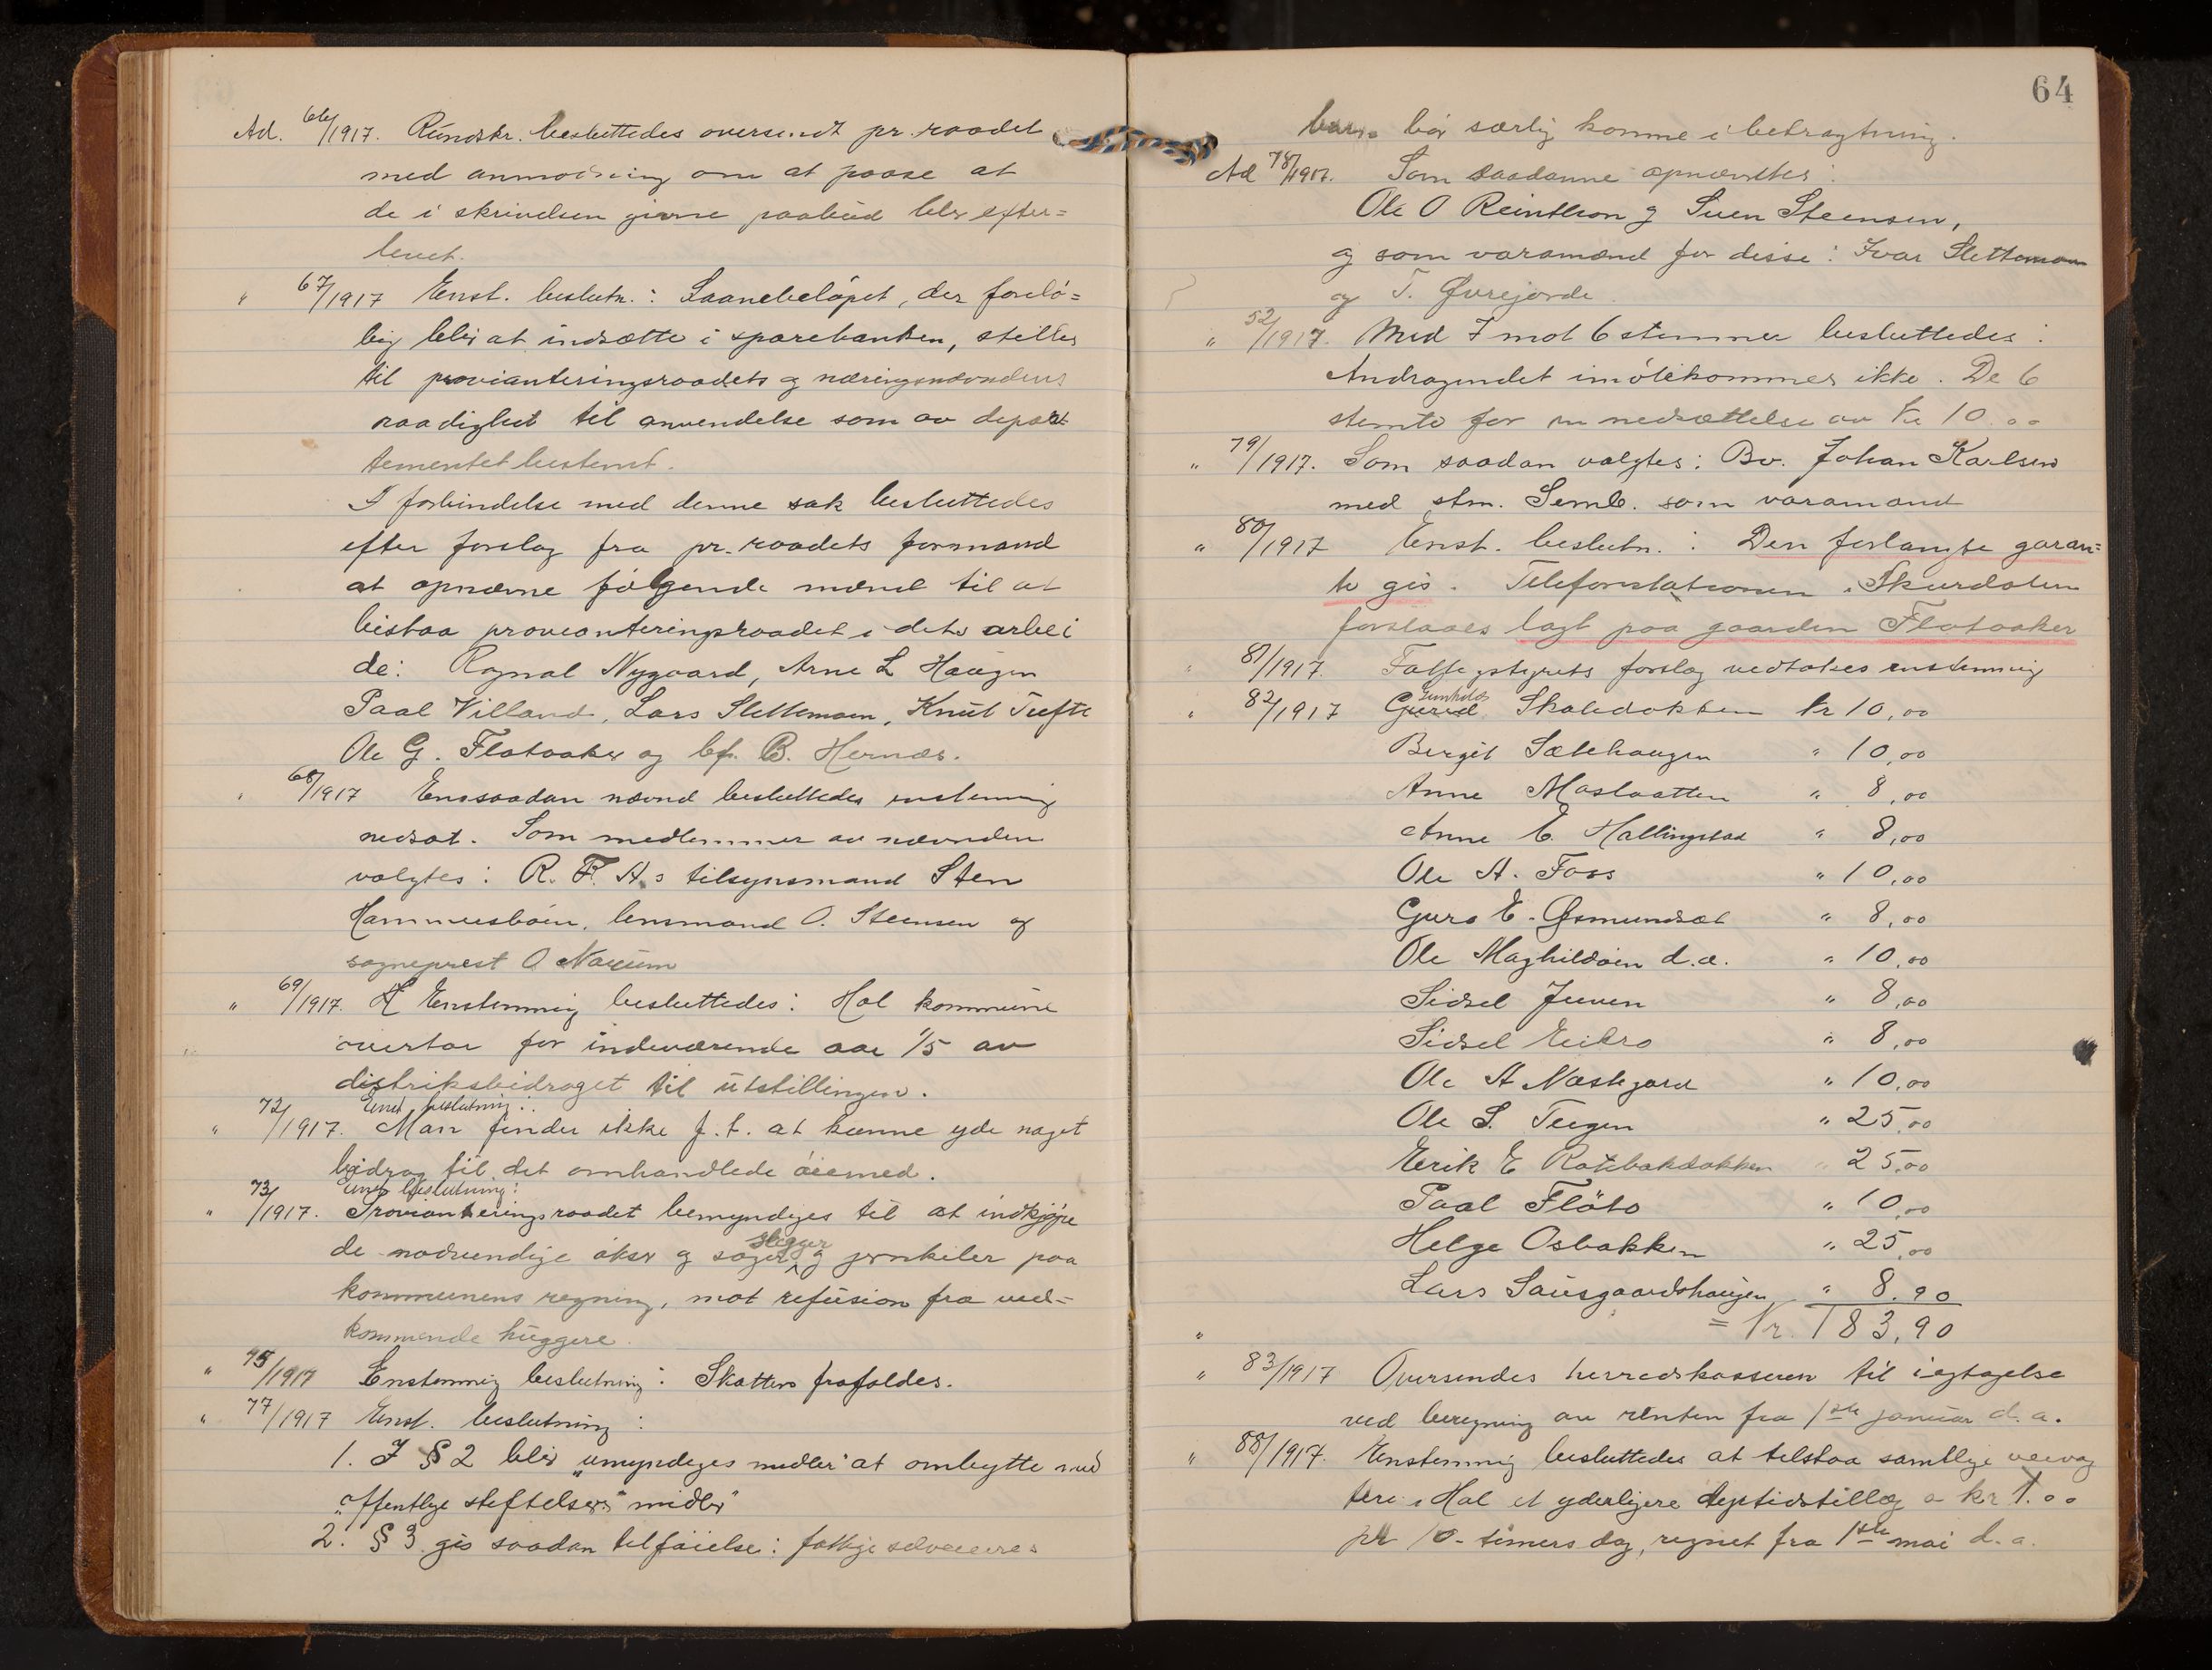 Ad. 66/1917. Rundskr. besluttedes oversendt pr. raadet
med anmodning om at paase at
de i skrivelsen givne paabud blir efter=
levet.
" 67/1917 Enst. beslutn.: Laanebeløpet, der forelø=
big blir at indsætte i sparebanken, stilles
til provianteringsraadets og næringsnævndens
raadighet til anvendelse som av depart
tementet bestemt.
I forbindelse med denne sak besluttedes
efter forslag fra pr. raadets formand
at opnævne følgende mænd til at
bistaa provianteringsraadet i dets arbei
de: Ragnal Nygaard, Arne L Haugen
Paal Villand, Lars Slettemoen, Knut Tufte
Ole G. Flataaker og bf. B. Hernæs.
" 68/1917 En saadan nævnd besluttedes enstemmig
nedsat. Som medlemmer av nævnden
valgtes: R. F. A.s tilsynsmand Sten
Hammersbøen, lensmand O. Steensen og
sogneprest O Naum
" 69/1917. Enstemmig besluttedes: Hol kommune
overtar for indeværende aar 1/5 av
distriksbidraget til utstillingen.
Enst. beslutning:
" 72/1917. Man finder ikke f. t. at kunne yde noget
bidrag til det omhandlede øiemed.
Enst. beslutning:
" 73/1917. Provianteringsraadet bemyndiges til at indkjøpe
slegger
de nødvendige økser og sager og jernkiler paa
kommunens regning, mot refusion fra ved=
kommende huggere.
" 75/1917 Enstemmig beslutning: Skatten frafaldes.
" 77/1917 Enst. beslutning:
1. I § 2 blir "umyndiges midler" at ombytte med
"offentlige stiftelsers midler"
2. § 3 gis saadan tilføielse: fattige selveiere
64
bør særlig komme i betragtning.
Ad 78/1917. Som saadanne opnævntes:
Ole O Reinthon og Sven Steensen,
og som varamænd for disse: Ivar Slettemoen
og T. Øvrejorde.
" 52/1917. Med 7 mot 6 stemmer besluttedes:
Andragendet imøtekommes ikke. De 6
stemte for en nedsættelse av kr 10.00
" 79/1917. Som saadan valgtes: Bv. Johan Karlsen
med stm. Semb. som varamand
" 80/1917 Enst. beslutn.: Den forlangte garan=
ti gis. Telefonstationen i Skurdalen
forslaaes lagt paa gaarden Flataaker
" 81/1917. Fattigstyrets forslag vedtokes enstemmig
Gunhild
" 82/1917 Gurid Skaledokken kr 10,00
Bergit Sætehaugen " 10,00
Anne Maslaatten " 8,00
Anne E. Hallingstad " 8,00
Ole A. Foss " 10,00
Guro E. Øsmundsæt " 8,00
Ole Maghildøen d.æ. " 10,00
Sidsel Juven " 8,00
Sidsel Eikro " 8,00
Ole A Næstegard " 10,00
Ole S. Teigen " 25,00
Erik E Rotebakdokken " 25,00
Paal Fløto " 10,00
Helge Osbakken " 25,00
Lars Sausgaardshaugen " 8.90
" = Kr. 183,90
" 83/1917 Oversendes herredskasseren til iagtagelse
ved beregning av renten fra 1ste januar d.a.
" 88/1917. Enstemmig besluttedes at tilstaa samtlige veivog
tere i Hol et yderligere dyrtidstillæg a kr 1.00
pr 10-timers dag, regnet fra 1ste mai d.a.